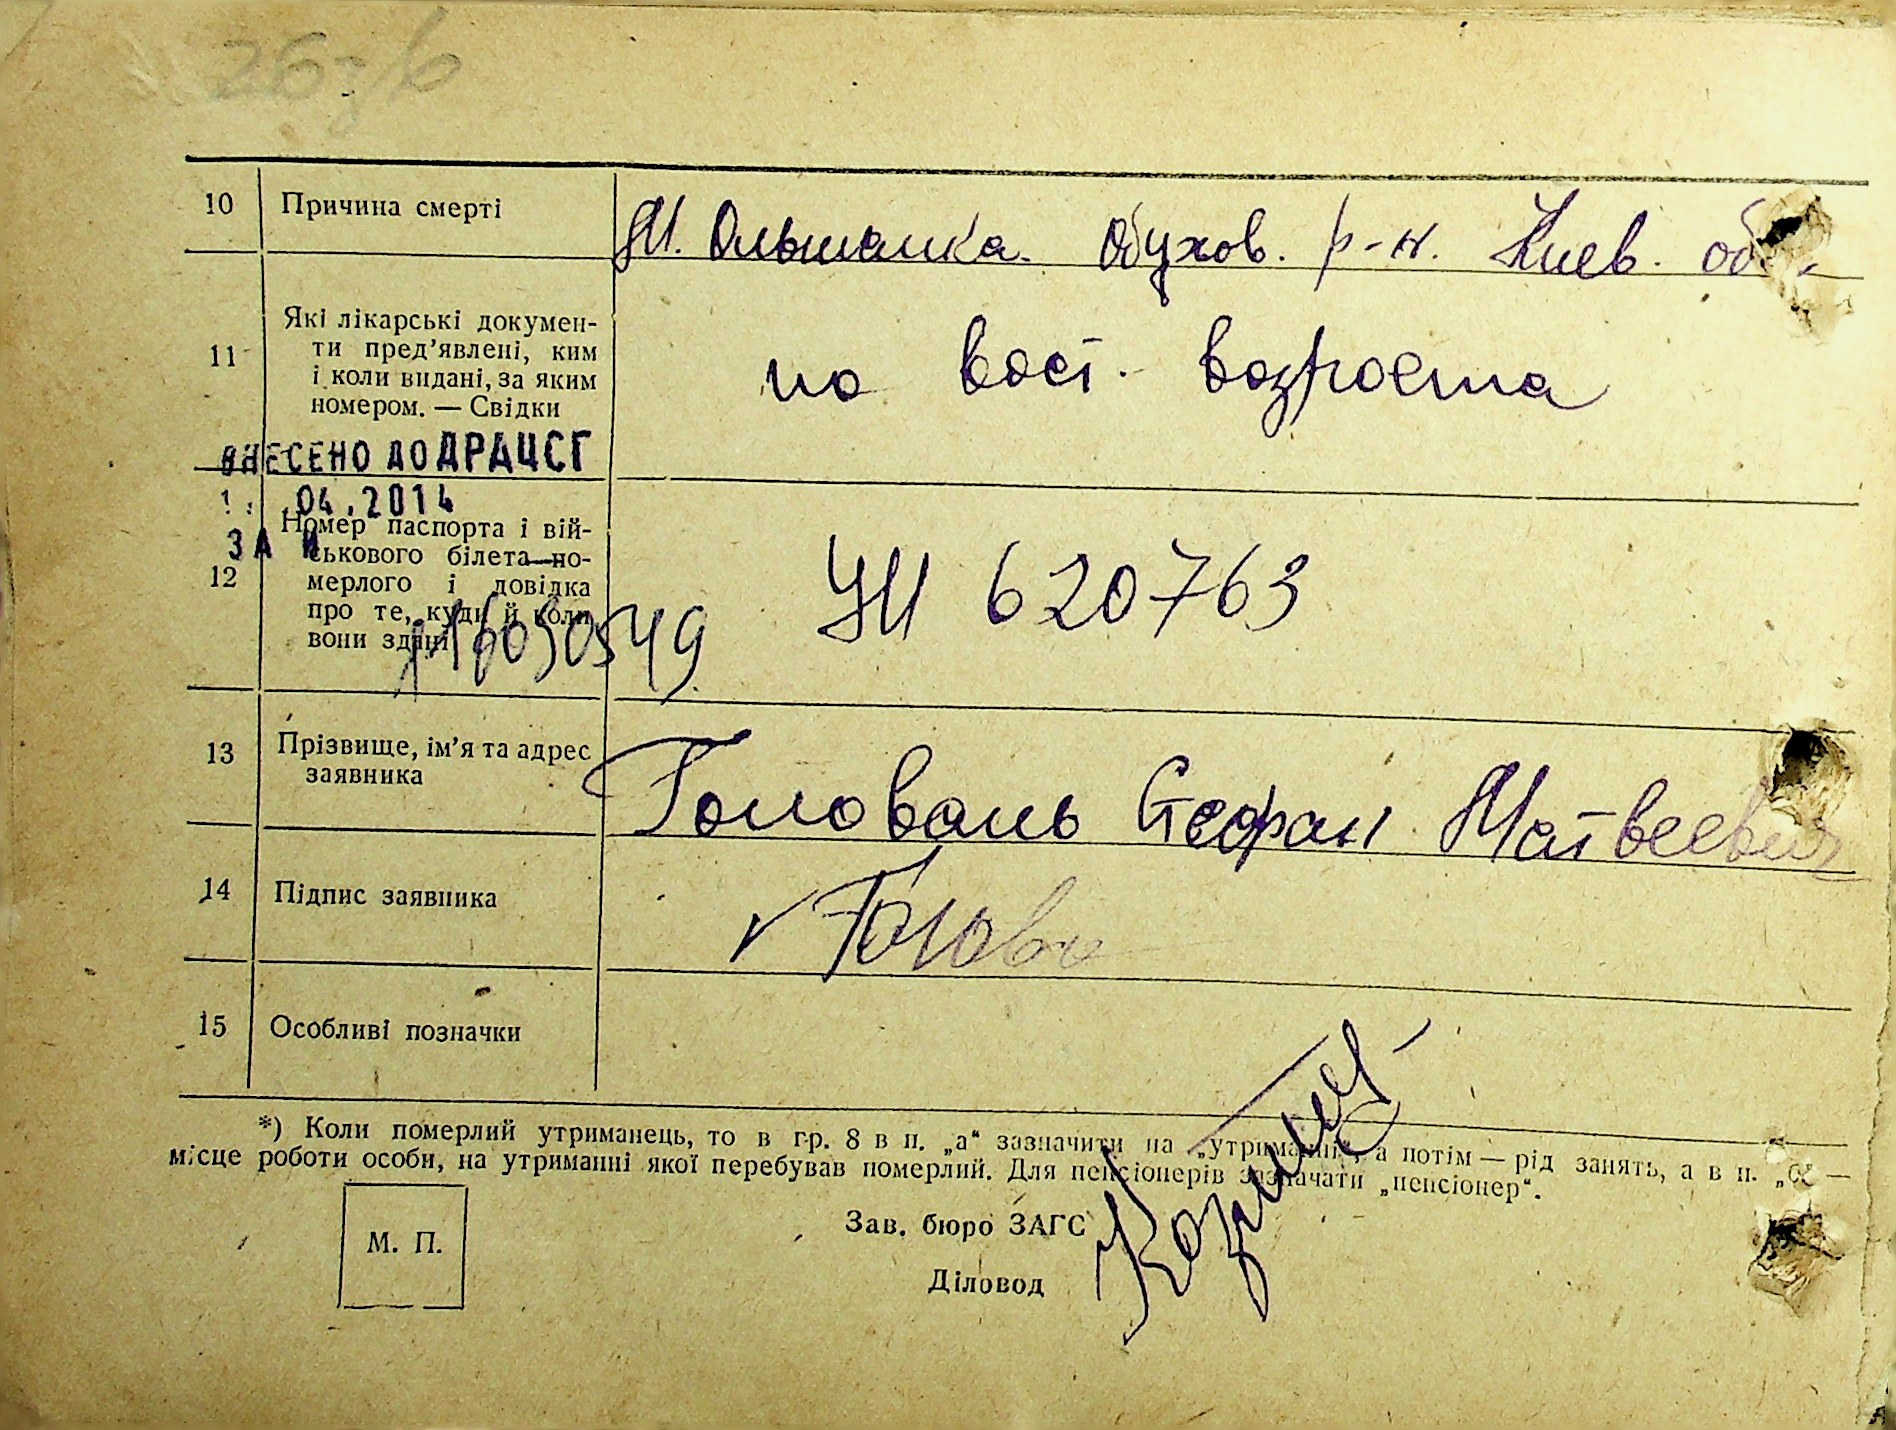 10 Причина смерті
М. Ольшанка. Обухов. р-н. Киев. об
11 Які лікарські докумен-
ти пред’явлені, ким
і коли видані, за яким
номером. — Свідки
по вост. возраста
ВНЕСЕНО ДО ДРАЦСГ
.04.2014
ЗА №
12 Номер паспорта і вій-
ськового білета по-
мерлого і довідка
про те, куди й коли
вони здані
УМ 620763
13 Прізвище, ім’я та адрес
заявника
Головань Стефан Матвеевич
14 Підпис заявника
Голова
15 Особливі позначки
*) Коли померлий утриманець, то в гр. 8 в п. „а“ зазначити на „утриманні“, а потім — рід занять, а в п. „б“ —
місце роботи особи, на утриманні якої перебував померлий. Для пенсіонерів зазначати „пенсіонер“.
М. П.
Зав. бюро ЗАГС
Діловод